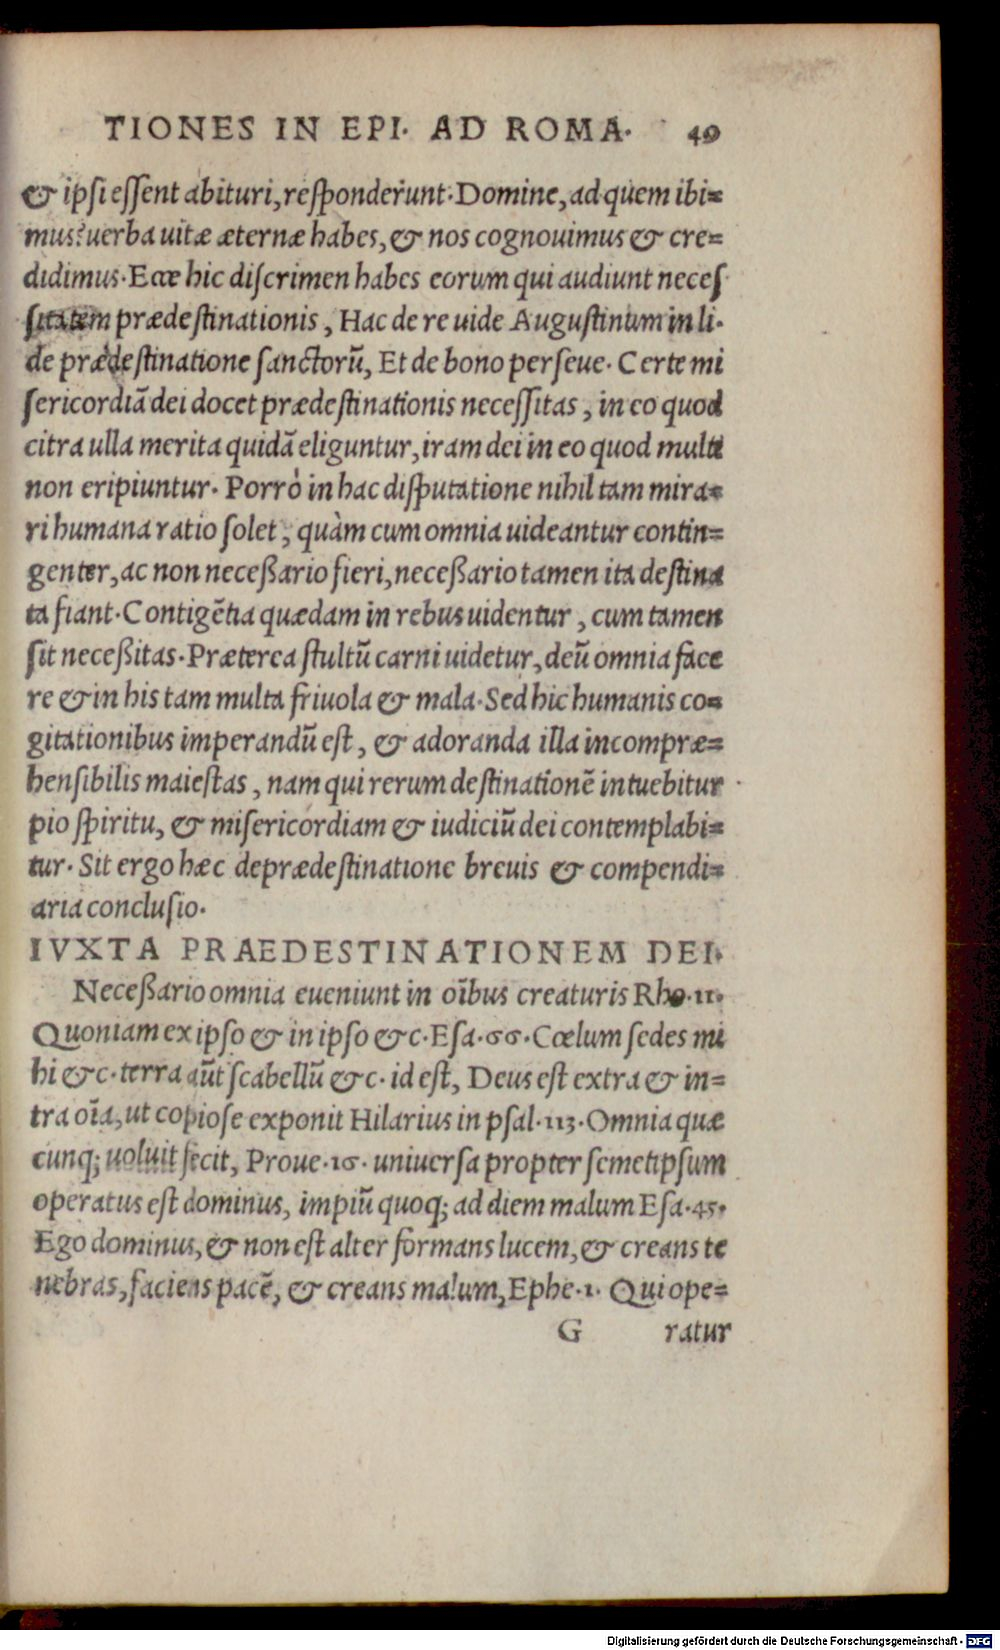 TIONES IN EPI. AD ROMA. 49
& ipsi essent abituri, responderunt. Domine, ad quem ibi=
mus? uerba uitæ æternæ habes, & nos cognouimus & cre=
didimus. Ecce hic discrimen habes eorum qui audiunt neces
sitatem prædestinationis, Hac de re uide Augustinum in li.
de prædestinatione sanctorũ, Et de bono perseue. Certe mi
sericordiã dei docet prædestinationis necessitas, in eo quod
citra ulla merita quidã eliguntur, iram dei in eo quod multi
non eripiuntur. Porrò in hac disputatione nihil tam mira=
ri humana ratio solet, quàm cum omnia uideantur contin=
genter, ac non neceßario fieri, neceßario tamen ita destina
ta fiant. Contigẽtia quædam in rebus uidentur, cum tamen
sit neceßitas. Præterea stultũ carni uidetur, deũ omnia face
re & in his tam multa friuola & mala. Sed hic humanis co=
gitationibus imperandũ est, & adoranda illa incompræ=
hensibilis maiestas, nam qui rerum destinationẽ intuebitur
pio spiritu, & misericordiam & iudiciũ dei contemplabi=
tur. Sit ergo hæc de prædestinatione breuis & compendi=
aria conclusio.
IVXTA PRAEDESTINATIONEM DEI.
Neceßario omnia eueniunt in oĩbus creaturis Rho. 11.
Quoniam ex ipso & in ipso &c. Esa. 66. Cœlum sedes mi
hi &c. terra aũt scabellũ &c. id est, Deus est extra & in=
tra oĩa, ut copiose exponit Hilarius in psal. 113. Omnia quæ
cunq; uoluit fecit, Proue. 16. uniuersa propter semetipsum
operatus est dominus, impiũ quoq; ad diem malum Esa. 45.
Ego dominus, & non est alter formans lucem, & creans te
nebras, faciens pacẽ, & creans malum, Ephe. 1. Qui ope=
G ratur
Digitalisierung gefördert durch die Deutsche Forschungsgemeinschaft - DFG